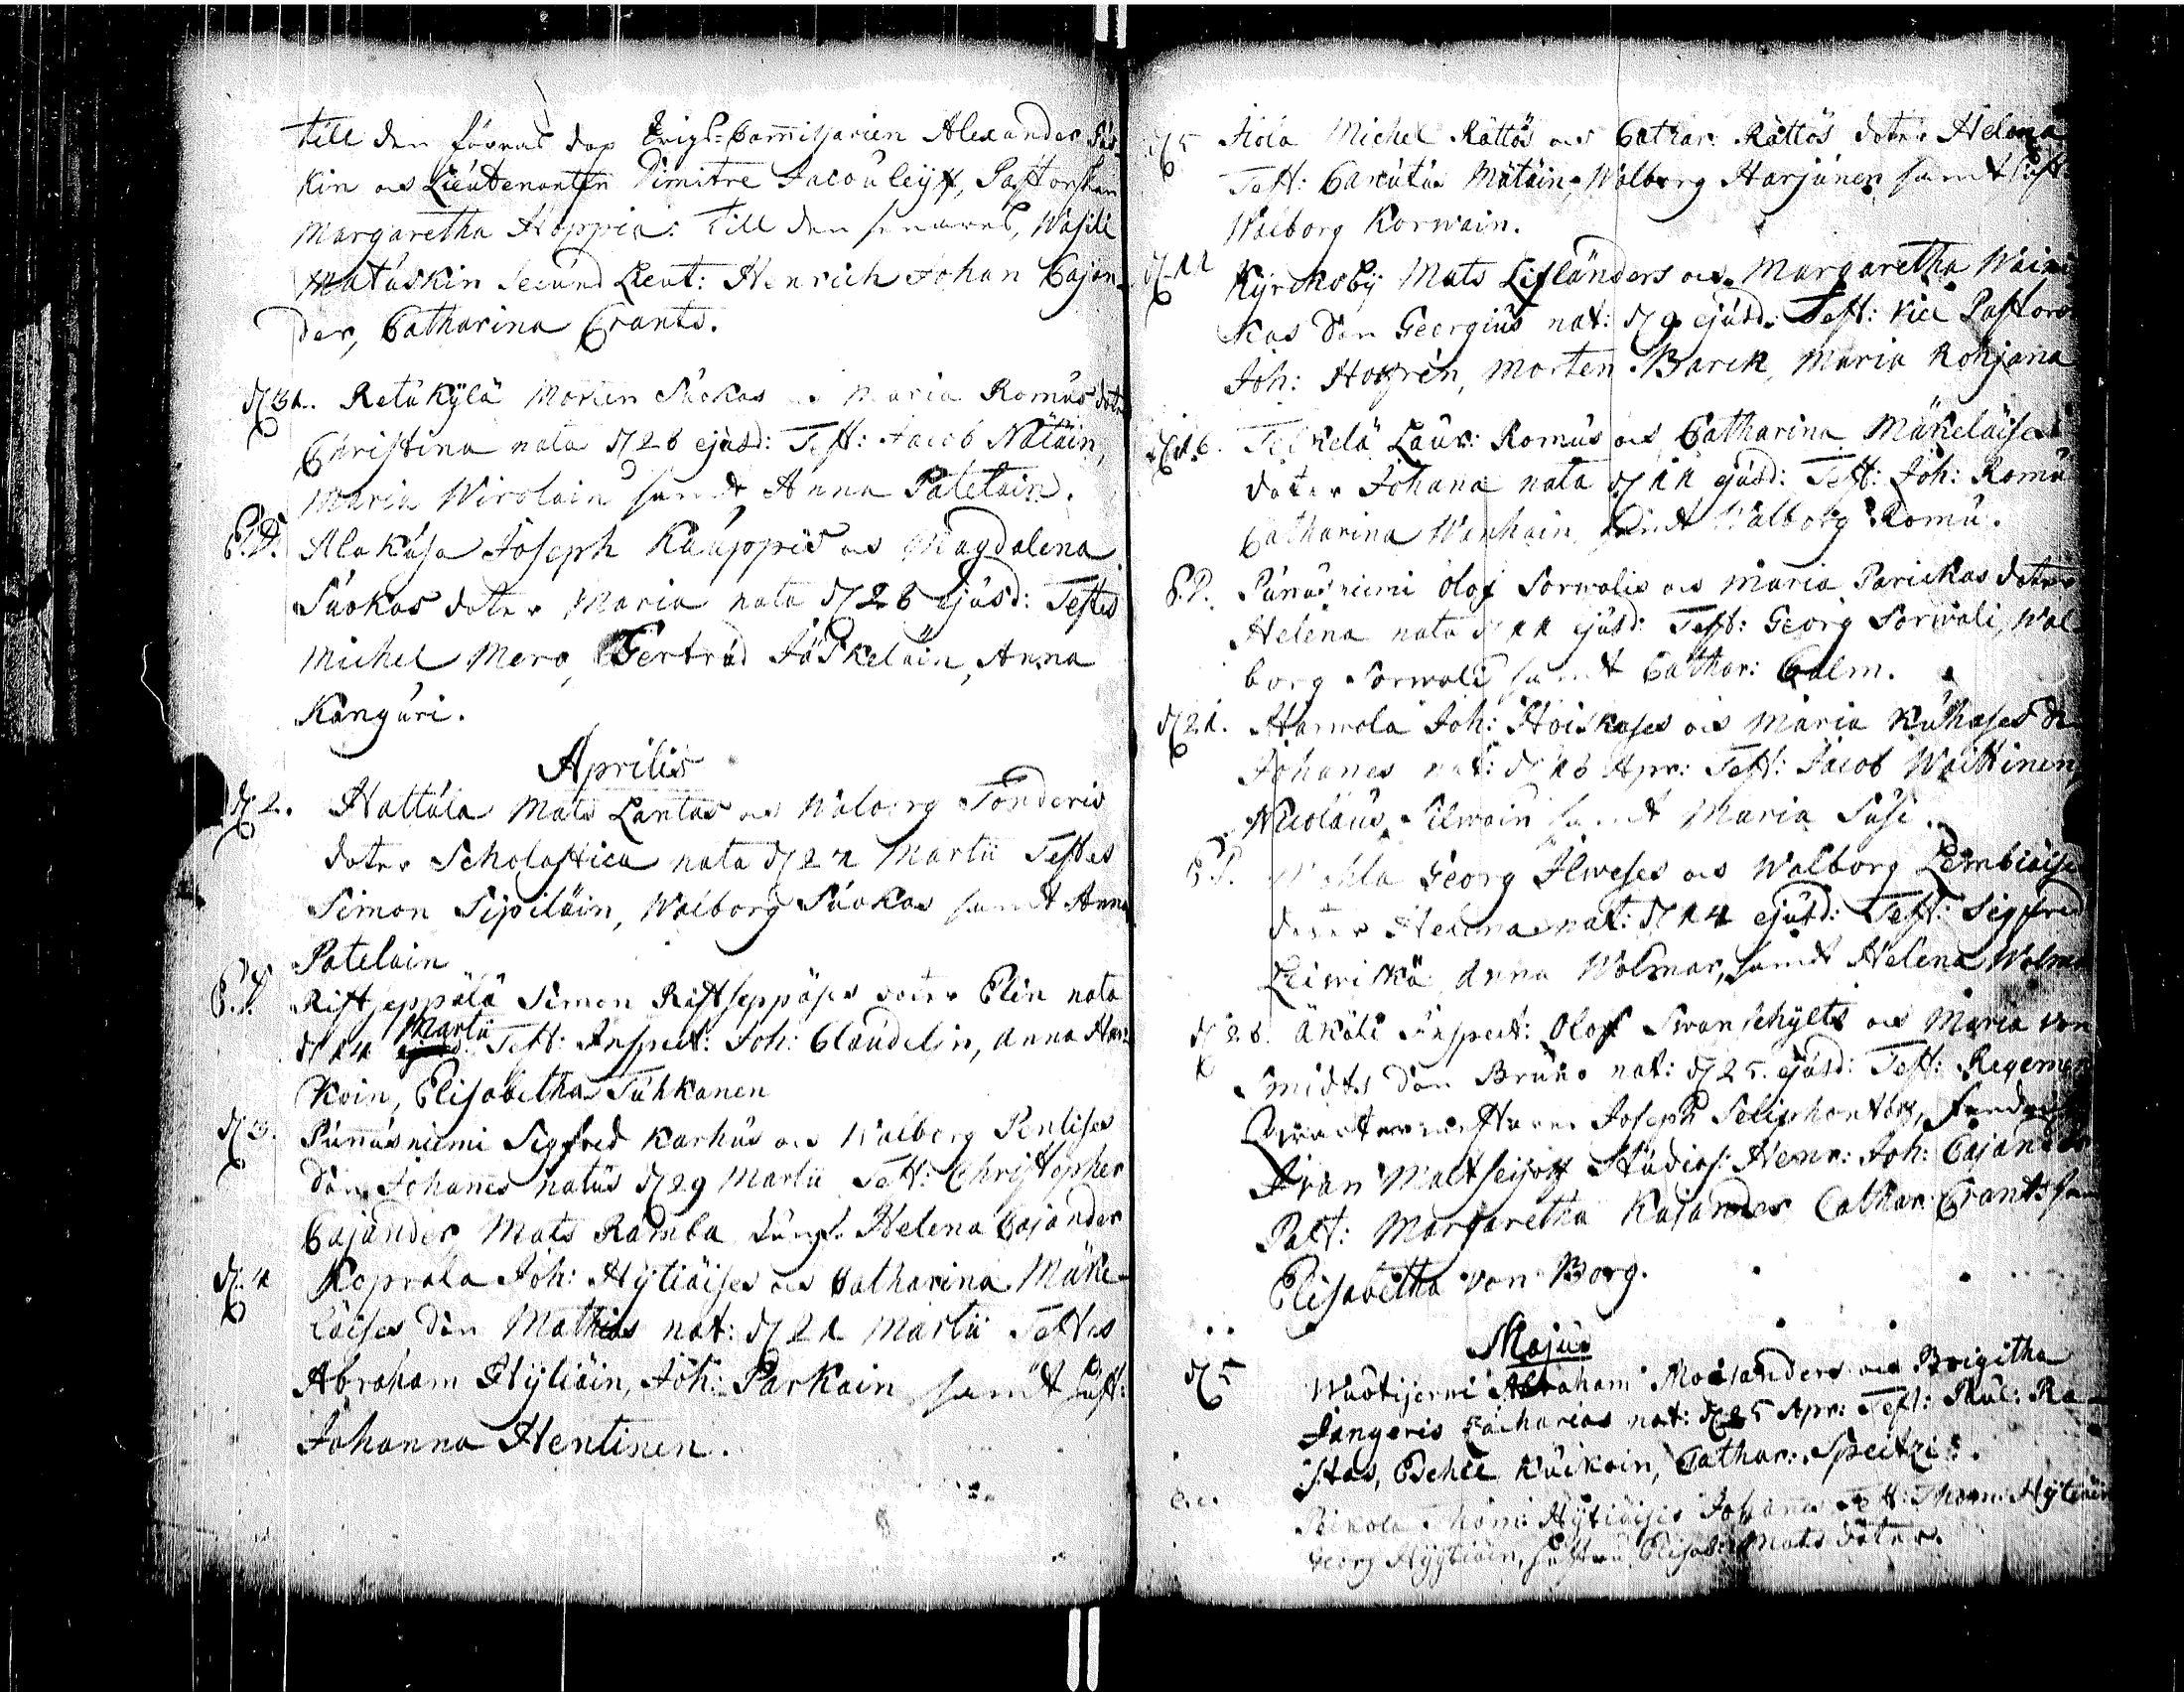 till den förras dop Krigs-Commissarien Alexander
kin och Lieutenanten Dimitre Jacouleff, Pastorskan
Margaretha Hoppia: till den senares, Wasili
Matuskin Secund Lieut: Henrich Johan Cajan-
der, Catharina Crants.
d 31. Retukylä Morten Suokas och Maria Romus doter
Christina nata d 28 ejusd: Test: Jacob Nätäin,
Maria Wirolain samt Anna Patelain.
E.D. Alakusa Joseph Kauppis och Magdalena
Suokas doter Maria nata d 28 ejusd: Testes
Michel Mero, Gertrud Jäskeläin, Anna
Kanguri.
Aprilis
d 2. Hattula Mats Lantas och Walborg Tonderis
doter Scholastica nata d 27 Martii Testes
Simon Sipiläin, Walborg Suokas samt Anna
Patelain
E.D. Ristseppälä Simon Ristseppäses doter Elin nata
d 14 Martii Test: Inspect: Joh: Claudelin, Anna Har-
koin, Elisabetha Tuhkanen
d 3. Punnusniemi Sigfred Karhus och Walborg Pentises
son Johanes natus d 29 Martii Test: Christopher
Cajander Mats Ramba Jungf. Helena Cajander
d 4 Koprala Joh: Hytiäises och Catharina Mäke-
läises son Mathias nat: d 21 Martii Testes
Abraham Hytiäin, Joh: Parkain samt hust:
Johanna Hentinen.
d 5 Hola Michel Rättös och Cathar: Rättös doter Helena
Test: Canutus Mätäin, Walborg Harjunen samt hust:
Walborg Korwain.
d 11 Kyrcksby Mats Lifländers och Margaretha Waini-
kas son Georgius nat: d 9 ejusd: Test: Vice Pastor
Joh: Hogrén, Morten Barck, Maria Kohjana
d 16. Telkelä Laur: Romus och Catharina Mäkeläises
doter Johana nata d 11 ejusd: Test: Joh: Romu
Catharina Wanhain, samt Walborg Romu.
E.D. Punusniemi Olof Sorwalis och Maria Parickas doter
Helena nata d 11 ejusd: Test: Georg Sorwali, Wal-
borg Sorwali samt Cathar: Calm.
d 21. Harwola Joh: Hoiskases och Maria Kuhases son
Johanes nat: d 16 Apr: Test: Jacob Waittinen,
Nicolaus Silwain samt Maria Susi.
E.D. Georg Ilweses och Walborg Lembiäises
doter Helena nat: d 14 ejusd: Test: Sigfred
Leiwiskä Anna Wolmar, samt Helena Wolmar
d 28. Äkäti Inspect: Olof Swanschylts och Maria von
Smidts son Bruno nat: d 25. ejusd: Test: Regements
Quartermestaren Joseph Seliphontow, Fendrich
Ivan Matfeijoff Studios: Henr: Joh: Cajander
Past: Margaretha Kajander Cathar: Crants samt
Elisabetha von Borg.
Majus
d 5 Wuotijerwi Abraham Molanders och Brigitha
Jangeris Zacharias nat: d 25 Apr: Test: Paul: Ra-
stas, Behel Kuikoin, Cathar: Speitzis.
Thom: Hytiäises Johanes Test: Thom: Hytiäin
Georg Hyytiäin, hustru Elisab: Mats doter.